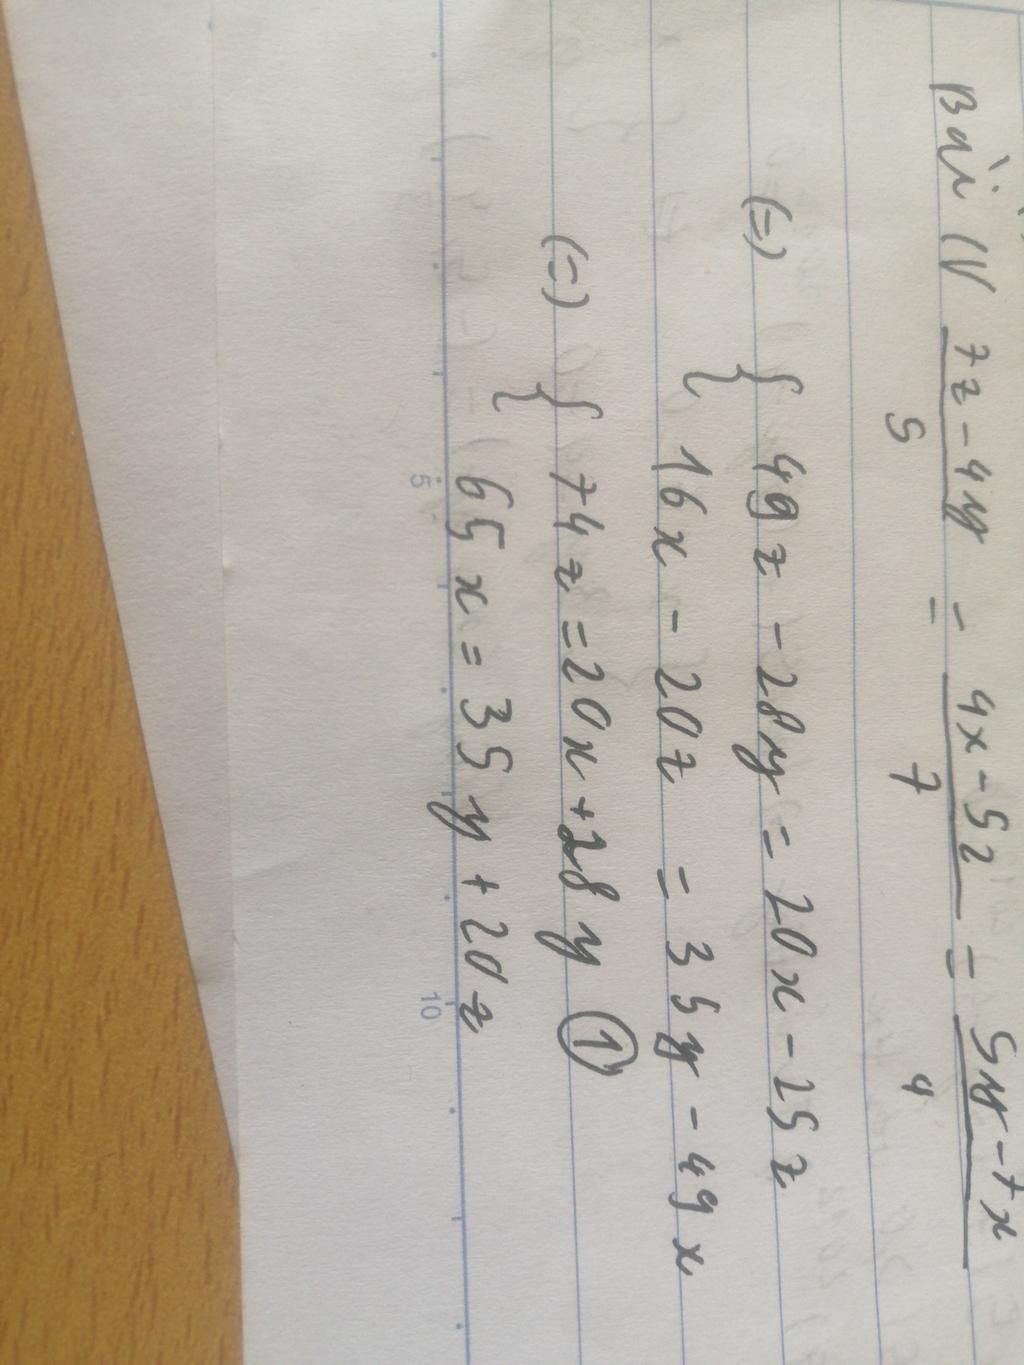 Bài IV 7z-4y = 4x-5z = 5y-7x
5 7 4
(=) { 49z - 28y = 20x - 25z
{ 16x - 20z = 35y - 49x
(=) { 74z = 20x + 28y 1
{ 65x = 35y + 20z
5 10